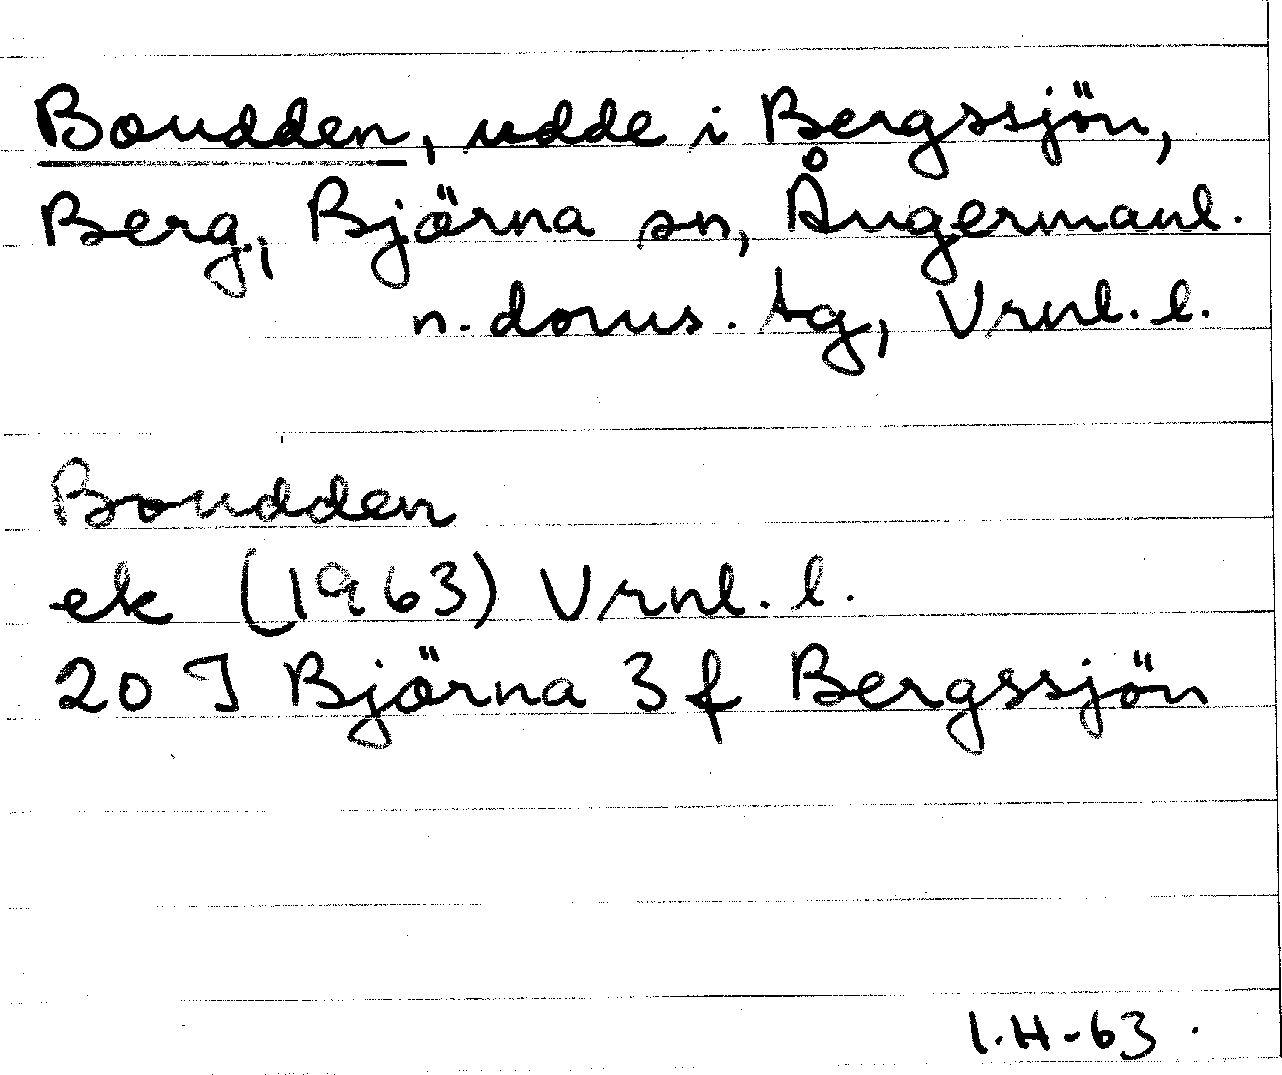 Boudden, udde i Bergssjön,
Berg, Björna sn, Ångermanl.
n. doms. tg, Vrnl. l.
Boudden
ek (1963) Vrnl. l.
20 J Björna 3 f Bergssjön
I.H-63.